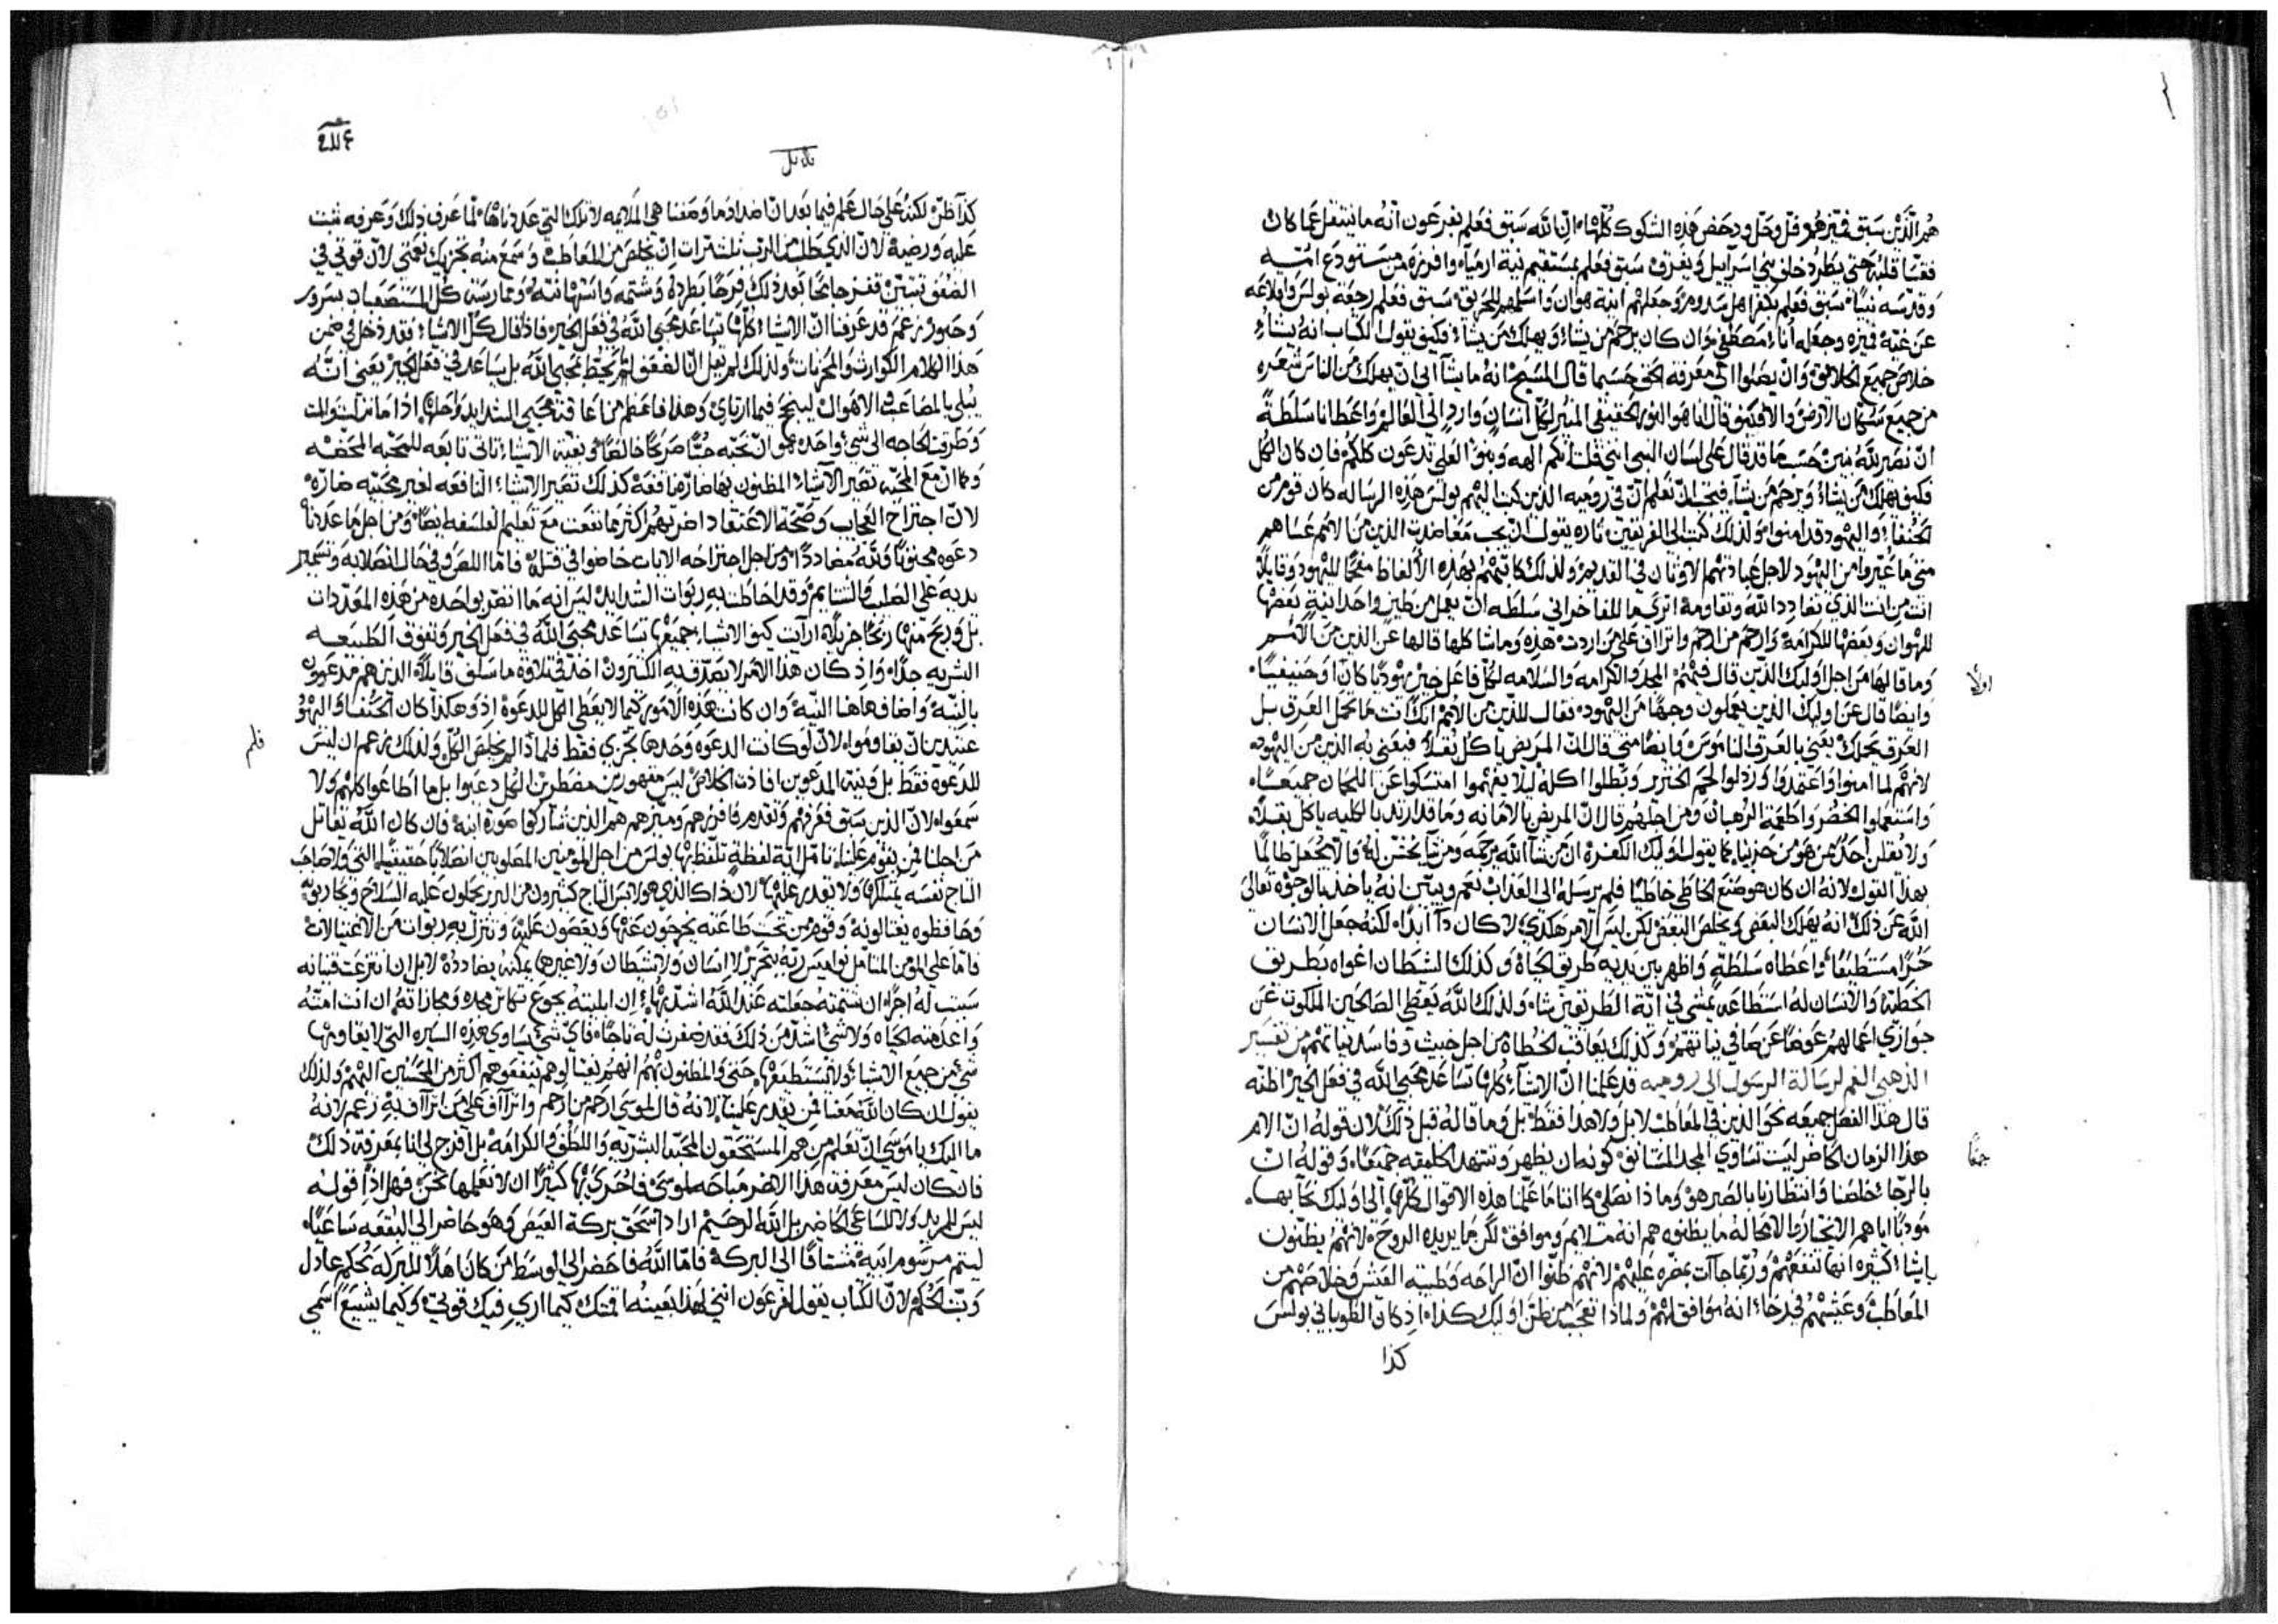 هم الذين سبق فميزهم قل وحل ودحض هذه الشكوك كلها ان الله سبق فعلم بفرعون انه ما ينتقل عما كان
فقسا قلبه حتى يطرد خلق بني اسرآييل ويغرق سبق فعلم بمستقيم نية ارميآ وافرزه من مستودع امه
وقدسه نبيا سبق فعلم بكفر اهل سدوم وجعلهم اية هوان واسلمهم للحريق سبق فعلم رجعة بولس واقلاعه
عن غيه فميزه وجعله انآء مصطفى وان كان يرحم من يشآء ويهلك من يشآء فكيف يقول الكتاب انه يشآء
خلاص جميع الخلايق وان يصلوا الى معرفة الحق حسبما قال المسيح انه ما يشآ ابي ان يهلك من الناس شعره
من جميع سكان الارض والا فكيف قال انا هو النور الحقيقي المنير لكل انسان وارد الى العالم واعطانا سلطة
ان نصير لله بنين حسب ما قد قال على لسان النبي انني قلت انكم الهه وبنو العلي تدعون كلكم فان كان الكل
فكيف يهلك من يشآء ويرحم من يشآء فيجب ان تعلم ان في روميه الذين كتب اليهم بولس هذه الرساله كان قوم من
الحنفآ واليهود قد امنوا ولذلك كتب الى الفريقين تاره يقول ان يجب معاضدت الذين من الامم عساهم
متى ما عيروا من اليهود لاجل عبادتهم الاوثان في القديم ولذلك كاتبهم بهذه الالفاظ مفحما لليهود وقايلا
انت من انت الذي تضادد الله وتقاومه اترى ما للفاخراني سلطه ان يعمل من طين واحد انية بعضها
للهوان وبعضها للكرامه وارحم من ارحم واتراف على من اردت هذه وماشا كلها قالها عن الذين من الامم
وما قالها من اجل اوليك الذين قال فيهم المجد والكرامه والسلامه لكل فاعل خير يهوديا كان او حنيفيا
اولا
وايضا قال عن اوليك الذين يعملون وجها من اليهود فقال للذين من الامم انك انت ما تحمل العرق بل
العرق يحملك يعني بالعرق الناموس وايضا متى قال ان المريض ياكل بقلا فيعني به الذين من اليهود
لانهم لما امنوا واعتمدوا ورذلوا لحم الخنزير وبطلوا اكله ليلا يفهموا امتسكوا عن اللحمان جميعا
واستعملوا الخضر واطعمة الرهبان ومن اجلهم قال ان المريض بالامانه وما قد ارتد بالكليه ياكل بقلا
ولا يقلن احد ممن هو من حزبنا كما يقول اوليك الكفره ان من شآ الله يرحمه ومن شآ يخشن له ولا تجعل ظالما
بهذا القول لانه ان كان هو صنع الخاطي خاطيا فلم يرسله الى العذاب نعم ويبين انه ياخذ بالوجوه تعالى
الله عن ذلك انه يهلك البعض ويخلص البعض لكن ليس الامر هكذي لا كان دآ ابدا لكنه جعل الانسان
حرا مستطيعا واعطاه سلطة واظهر بين يديه طريق الحياة وكذلك الشيطان اغواه بطريق
الخطية والانسان له استطاعه يمشي في اية الطريقين شاء ولذلك الله يعطي الصالحين الملكوت عن
جوازي اعمالهم عوضا عن صافي نياتهم وكذلك يعاقب الخطاة من اجل خبيث وفاسد نياتهم من تفسير
الذهبي الفم لرسالة الرسول الى روميه قد علمنا ان الاشيآء كلها تساعد محبي الله في فعل الخير اظنه
قال هذا الفصل جميعه نحو الذين في المعاطب لا بل ولا هذا فقط بل وما قاله قبل ذلك لان قوله ان الام
هذا الزمان الحاضر ليست تساوي المجد المتانق كونه ان يظهر وتنتهد الخليقه جميعا وقوله ان
جمعا
بالرجآء خلصنا وانتظارنا بالصبر هو وما ذا نصلي كما اننا ما علمنا هذه الاقوال كلها الى اوليك نحا بها
مودبا اياهم الا تختاروا لا محاله ما يظنوه هم انه ملايم وموافق لكن ما يريده الروح لانهم يظنون
باشيآء كثيره انها تنفعهم وربما جآت بمضره عليهم لانهم ظنوا ان الراحه وطيبة العيش وخلاصهم من
المعاطب وعيشهم في رخآء انه موافق لهم ولماذا تعجب من ظن اوليك كذا اذ كان الطوباني بولس
كذا
كذا ظن لكنه على حال علم فيما بعد ان اضداد ما وصفنا هي الملايمه لا تلك التي عددناها لما عرف ذلك وعرفه ثبت
عليه ورضيه لان الذي طلب من الرب ثلث مرات ان يخلص من المعاطب وسمع منه تجزيك نعمتي لان قوتي في
الضعف تستبين قفز جانحا بعد ذلك فرحا بطرده وشتمه واستهانته وممارسته كل المستصعبات بسرور
وحبور زعم قد عرفنا ان الاشيآء كلها تساعد محبي الله في فعل الخير فاذ قال كل الاشيآء فقد دخل في ضمن
هذا الكلام الكوارث والمحزنات ولذلك لم يقل ان الضغف لم يحيط بمحبي الله بل يساعد في فعل الخير يعني انه
يبلي بالمصاعب والاهوال لينجح فيما ارتاي وهذا فاعظم من اعاقته محبي الشدايد واحلها اذا ما نزلت والت
وطرقت الحاجه الى شي واحده هو ان نحبه حبا صريحا خالصا وبقية الاشيآء تاتي تابعه للمحبه المحضه
وكما ان مع المحبه تصير الاشيآء المظنون بها ضاره نافعه كذلك تصير الاشيآء النافعه لغير محبيه ضاره
لان اجتراح العجايب وصحة الاعتقاد اضر بهم اكثر مما نفعت مع تعليم الفلسفه ايضا ومن اجل ما عددناه
دعوه مجنونا وقته مضاددا ومن اجل اجتراحه الايات خاضوا في قتله فاما اللص ففي حال انصلابه وتسمير
يديه على الصليب والشتايم وقد احاطت به ربوات الشدايد ليس انه ما انضر بواحده من هذه المعددات
بل وربح منها ربحا جزيلا ارايت كيف الاشيآء جميعها تساعد محبي الله في فعل الخير وتفوق الطبيعه
البشريه جدا واذ كان هذا الامر لا يصدق به الكثيرون اخذ في تلاوة ما سلف قايلا الذين هم مدعوون
بالنية واضاف هاهنا النية وان كانت هذه الامور كيما لا يعطي الكل للدعوة اذ وهكذا كان الحنفآ واليهود
عتيدين ان يقاوموه لان لو كانت الدعوه وحدها تجزي فقط فلماذا لم يخلص الكل ولذلك زعم ان ليس
فلم
للدعوة فقط بل ونية المدعوين افادت الخلاص ليس مقهورين مضطرين الكل دعيوا بل ما اطاعوا كلهم ولا
سمعوا لان الذين سبق فعرفهم وتقدم فافرزهم وميزهم هم الذين شاركوا صورة ابنه فان كان الله يقاتل
من اجلنا فمن يقوم علينا تامل اية لفظة تلفظ بها بولس من اجل المومنين المصلوبين انصلابا حقيقيا التي ولا صاحب
التاج نفسه يمتلكها ولا يقدر عليها لان ذاك الذي هو لابس التاج كثيرون من البربر يحملون عليه السلاح ويحاربونه
وحافظوه يغتالونه وقوم من تحت طاعته يخرجون عنها ويعصون عليه وتنزل به ربوات من الاغتيالات
فاما على المومن المتامل نواميس ربه بتحرير لا انسان ولا شيطان ولا غيرها يمكنه يضادده لا بل ان انتزعت قنيانه
سببت له اجرا ان شتمته جعلته عند الله اشد بهآء ان ابليته بجوع تكاثر مجده ومجازاته ان انت امته
واعدمته الحياه ولا شي اشد من ذلك فقد ضفرت له تاجا فاي شي يساوي هذه السيره التي لا يقاومها
شي من جميع الاشيآء ولا تستطيعها حتى والمظنون بهم انهم يغتالوهم ينفعوهم اكثر من المحسنين اليهم ولذلك
يقول ان كان الله معنا فمن يقدر علينا لانه قال لموسى ارحم من ارحم واتراآف على من اتراآف به زعم لانه
ما اليك يا موسى ان تعلم من هم المستحقون المحبه البشريه واللطف والكرامه بل افرج لي انا بمعرفة ذلك
فان كان ليس معرفة هذا الامر مباحه لموسى فاحرى بها كثيرا ان لا نعلمها نحن فهل اذا قوله
ليس للمريد ولا للساعي الحاضر بل الله الرحيم اراد استحق بركة العيص وهو حاضر الى البقعه ساعيا
ليتم مرسوم ابيه مشتاقا الى البركة فاما الله فاحضر الى الوسط من كان اهلا للمنزله بحكم عادل
وبت الحكم لان الكتاب يقول لفرعون انني لهذا بعينه اقمتك كيما اري فيك قوتي وكيما يشيع اسمي